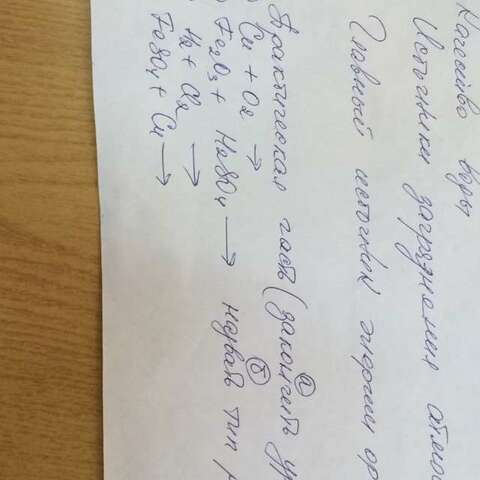 Качество воды
Источники загрязнения атмос
Главный источник энергии ор
Практическая часть (закончить ур
а
б
) Cu + O2 →
) Fe2O3 + H2SO4 → назвать тип р
H2 + O2 →
FeSO4 + Cu →